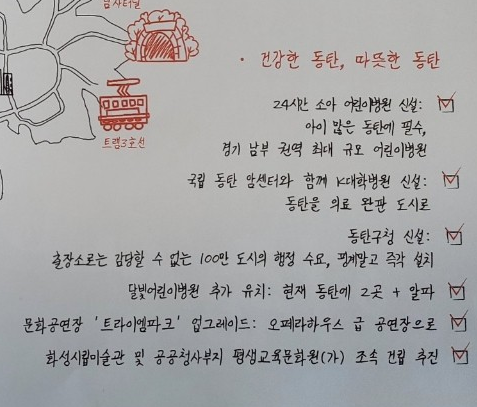 남사터널
트램3호선
· 건강한 동탄, 따뜻한 동탄
24시간 소아 어린이병원 신설:
아이 많은 동탄에 필수,
경기 남부 권역 최대 규모 어린이병원
국립 동탄 암센터와 함께 K대학병원 신설:
동탄을 의료 완관 도시로
동탄구청 신설:
출장소로는 감당할 수 없는 100만 도시의 행정 수요, 핑계말고 즉각 설치
달빛어린이병원 추가 유치: 현재 동탄에 2곳 + 알파
문화공연장 '트라이엠파크' 업그레이드: 오페라하우스 급 공연장으로
화성시립미술관 및 공공청사부지 평생교육문화원(가) 조속 건립 추진